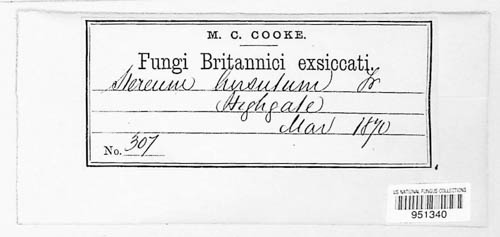 M. C. COOKE.
Fungi Britannici exsiccati.
Stereum hirsutum Fr
Highgate
Mar 1870
No. 307
US NATIONAL FUNGUS COLLECTIONS
951340